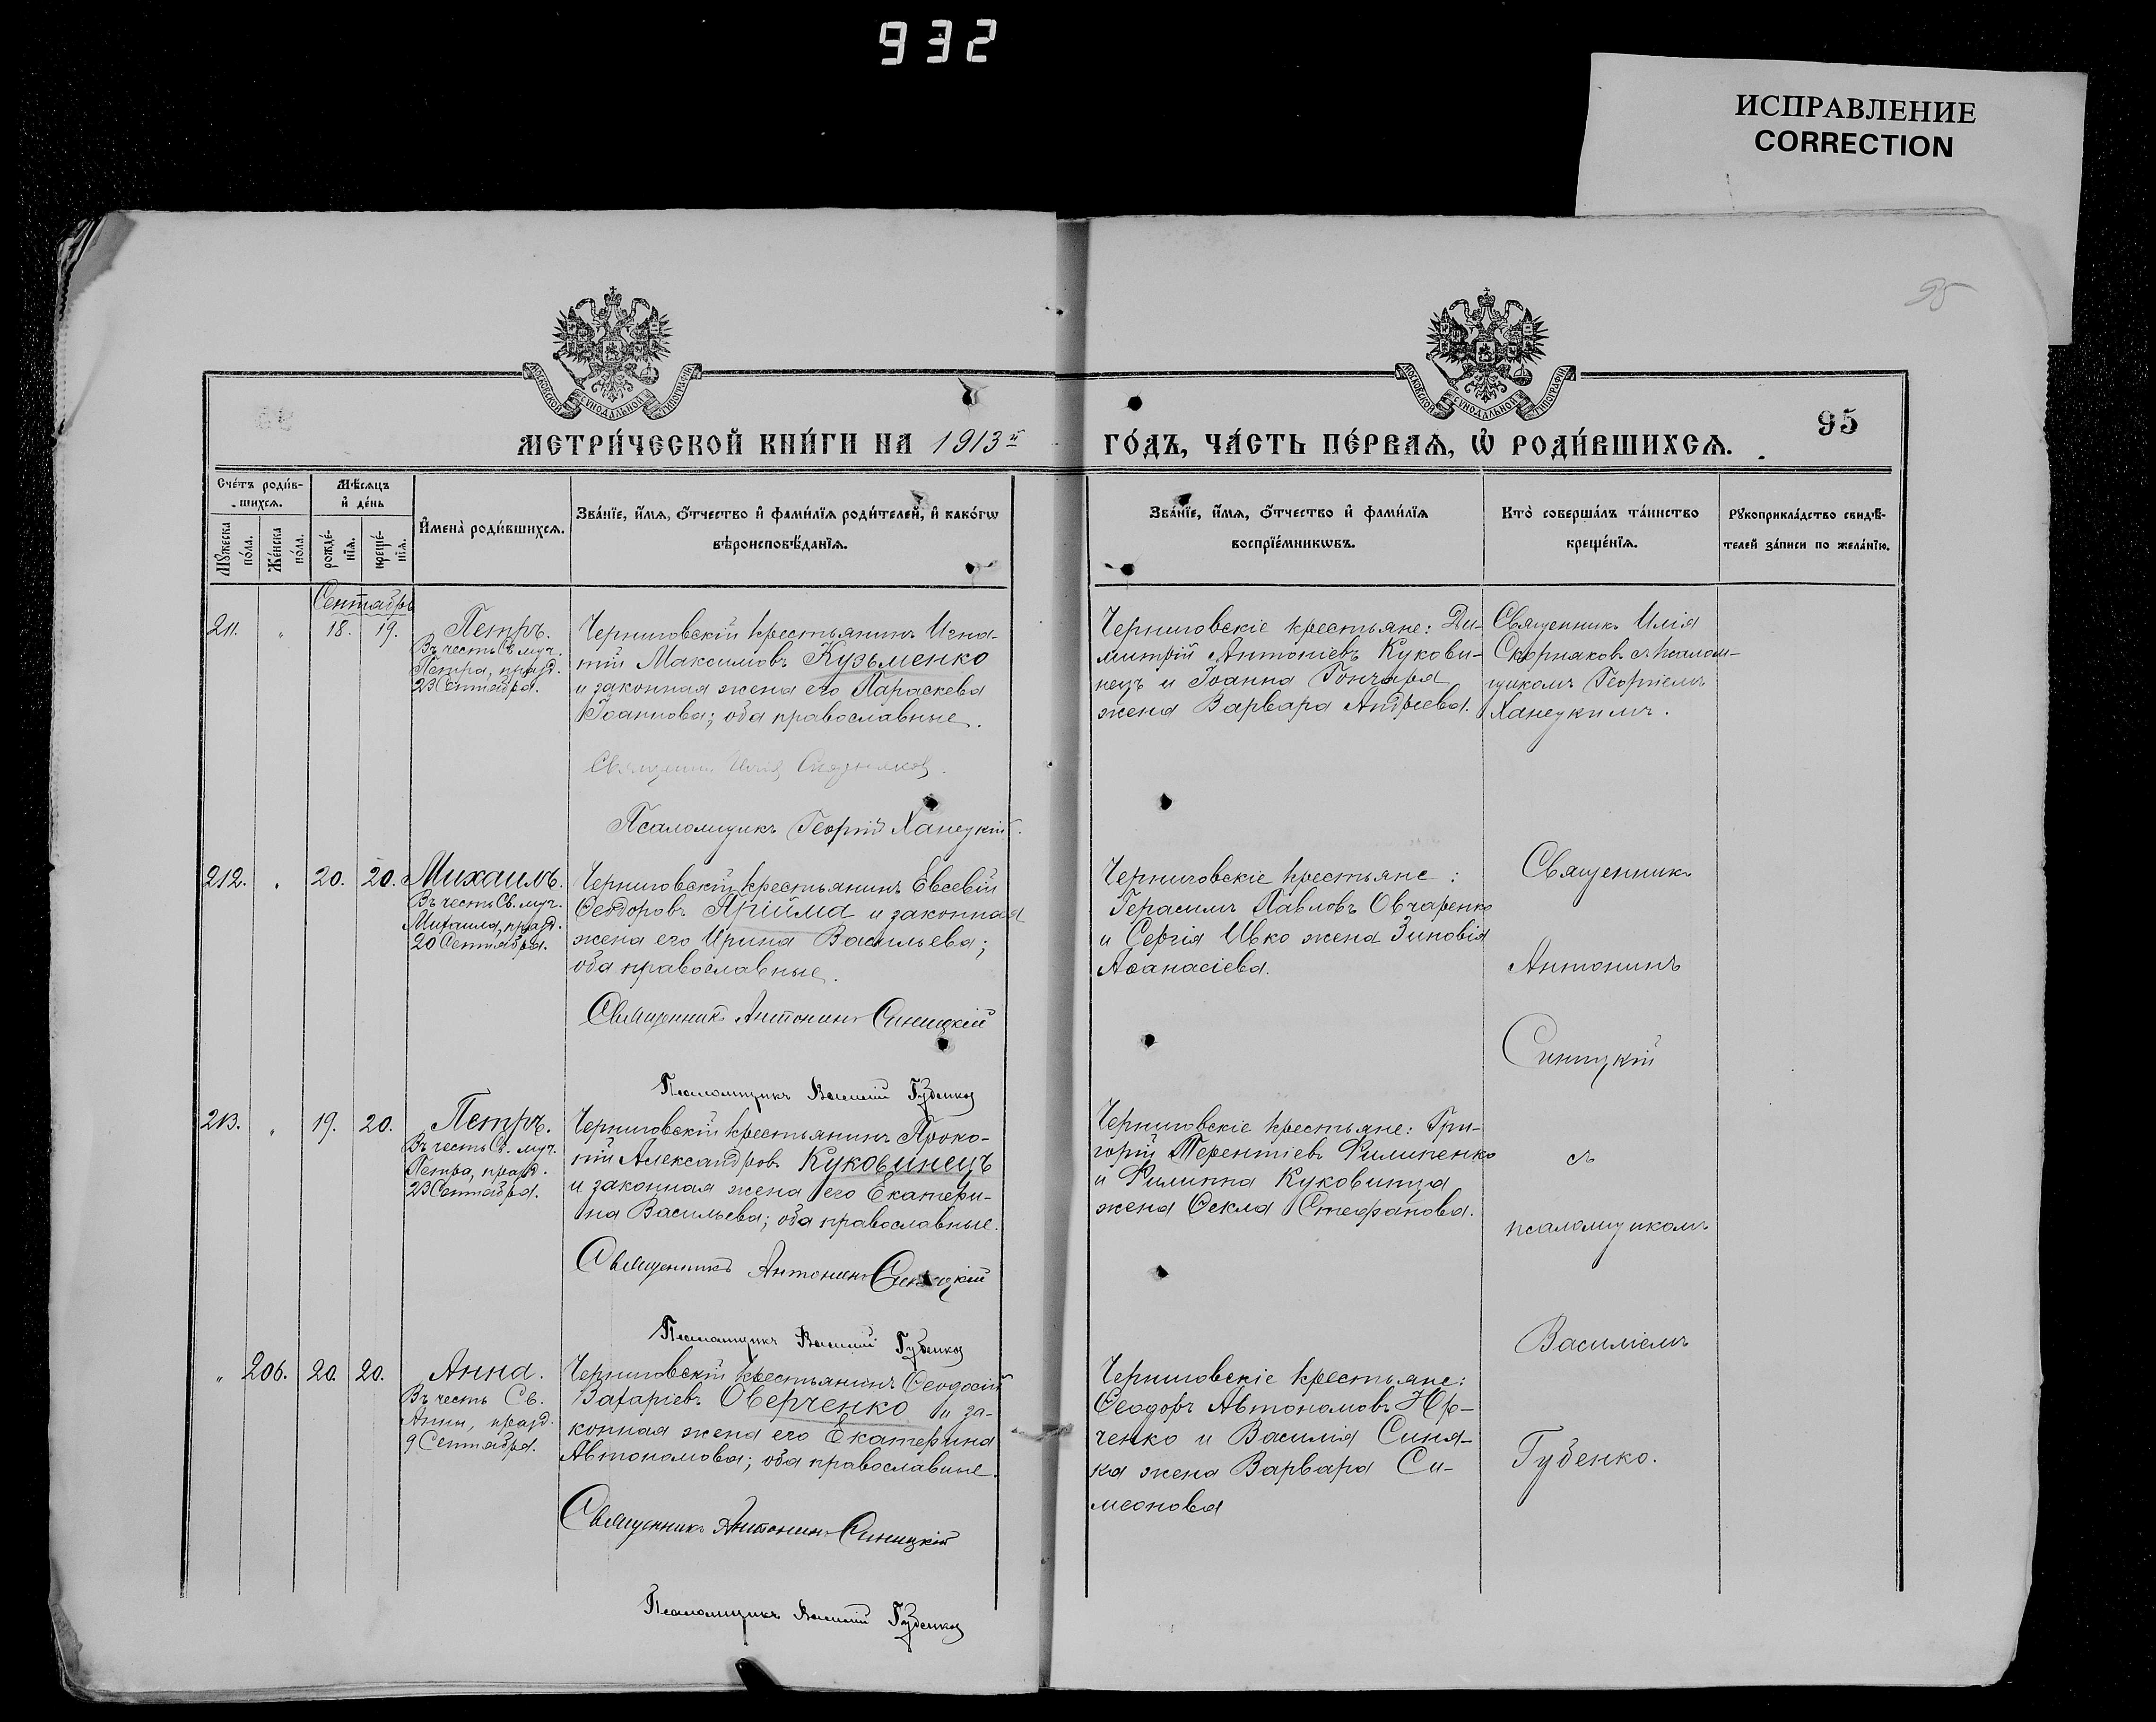 932
ИСПРАВЛЕНИЕ
CORRECTION
95
МОСКОВСКОЙ СѴНОДАЛЬНОЙ ТИПОГРАФІИ
МОСКОВСКОЙ СѴНОДАЛЬНОЙ ТИПОГРАФІИ
95
МЕТРИ́ЧЕСКОЙ КНИ́ГИ НА 1913й ГО́ДЪ, ЧА́СТЬ ПЕ́РВАѦ, Ѡ҆ РОДИ́ВШИХСѦ.
Сче́тъ роди́в-
шихсѧ.
Мꙋ́жеска по́ла.
Же́нска по́ла.
Мѣ́сѧцъ
и҆ де́нь
рожде́-нїѧ.
креще́-нїѧ.
И҆мена̀ роди́вшихсѧ.
Зва́нїе, и҆́мѧ, ѻ҆́тчество и҆ фами́лїѧ роди́телей, и҆ како́гѡ
вѣроисповѣ́данїѧ.
Зва́нїе, и҆́мѧ, ѻ҆́тчество и҆ фами́лїѧ
воспрїе́мникѡвъ.
Кто̀ соверша́лъ та́инство
креще́нїѧ.
Рꙋкоприкла́дство свидѣ́-
телей за́писи по жела́нїю.
Сентябрь
211. " 18. 19.
Петръ.
Въ честь Св. муч.
Петра, празд.
23 Сентября.
Черниговскій крестьянинъ Игна-
тій Максимовъ Кузьменко
и законная жена его Параскева
Іоаннова; оба православные.
Священникъ Илія Скорняковъ.
Псаломщикъ Георгій Ханецкій.
Черниговскіе крестьяне: Ди-
митрій Антоніевъ Кукови-
нецъ и Іоанна Гончара
жена Варвара Андреева.
Священникъ Илія
Скорняковъ съ псалом-
щикомъ Георгіемъ
Ханецкимъ.
212. " 20. 20.
Михаилъ.
Въ честь Св. муч.
Михаила, празд.
20 Сентября.
Черниговскій крестьянинъ Евсевій
Ѳеодоровъ Прійма и законная
жена его Ирина Васильева;
оба православные.
Священникъ Антонинъ Синицкій
Псаломщикъ Василій Губенко
Черниговскіе крестьяне:
Герасимъ Павловъ Овчаренко
и Сергія Ивко жена Зиновія
Аѳанасіева.
Священникъ
Антонинъ
Синицкій
съ
псаломщикомъ
Василіемъ
Губенко.
213. " 19. 20.
Петръ.
Въ честь Св. муч.
Петра, празд.
23 Сентября.
Черниговскій крестьянинъ Проко-
пій Александровъ Куковинецъ
и законная жена его Екатери-
на Васильева; оба православные.
Священникъ Антонинъ Синицкій
Псаломщикъ Василій Губенко
Черниговскіе крестьяне: Гри-
горій Терентіевъ Филипенко
и Филиппа Куковинца
жена Ѳекла Стефанова.
" 206. 20. 20.
Анна.
Въ честь Св.
Анны, празд.
9 Сентября.
Черниговскій крестьянинъ Ѳеодосій
Захаріевъ Оверченко и за-
конная жена его Екатерина
Автономова; оба православные.
Священникъ Антонинъ Синицкій
Псаломщикъ Василій Губенко
Черниговскіе крестьяне:
Ѳеодоръ Автономовъ Юр-
ченко и Василія Синя-
ка жена Варвара Си-
меонова